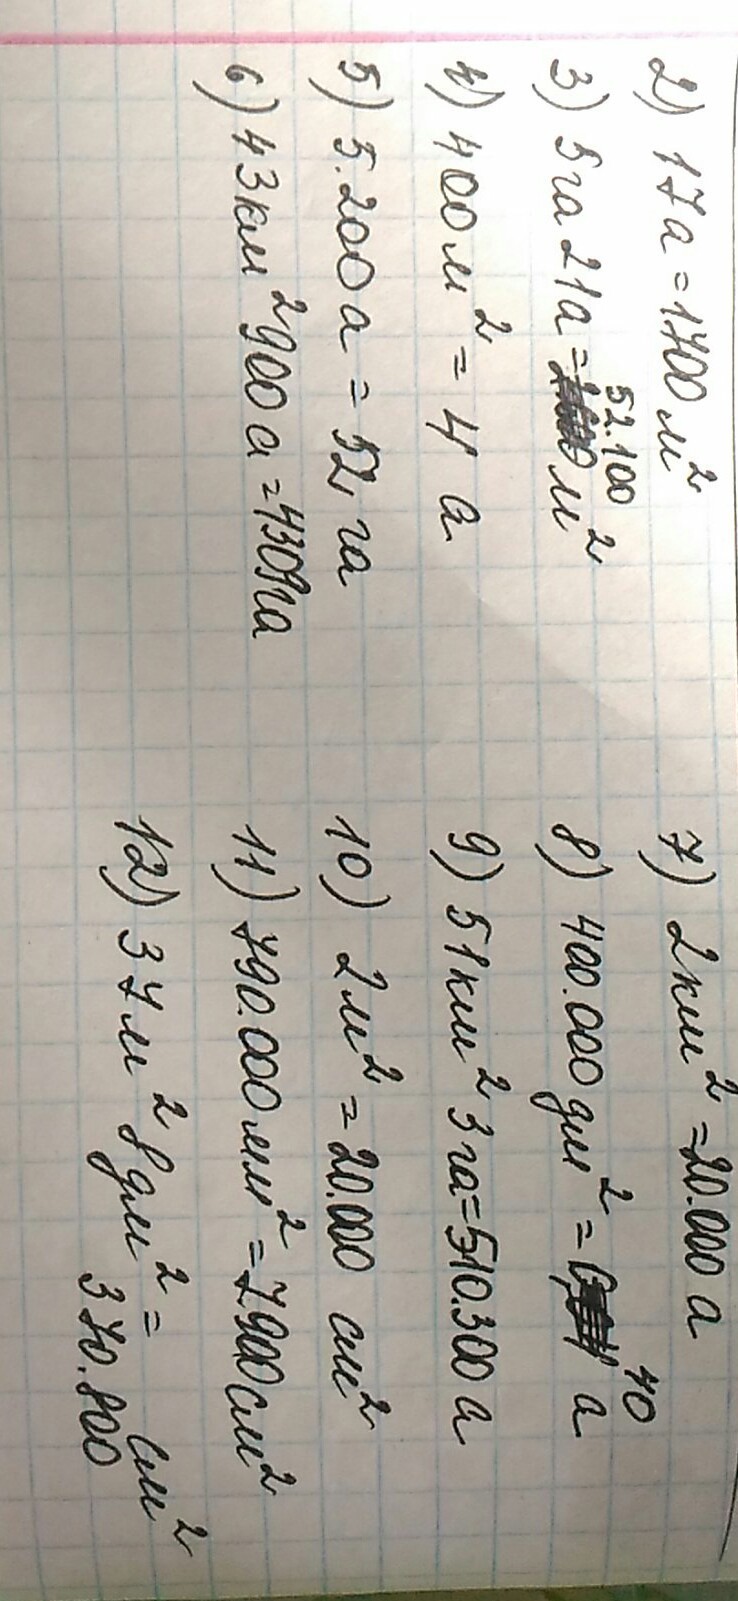 2) 17а = 1700 м²
3) 5га 21а = 52.100 м²
4) 400 м² = 4 а
5) 5.200 а = 52 га
6) 43км² 900 а = 4309га
7) 2км² = 20.000 а
8) 400.000 дм² = 40 а
9) 51км² 3га = 510.300 а
10) 2м² = 20.000 см²
11) 790.000 мм² = 7.900 см²
12) 37м² 8дм² =
370.800 см²